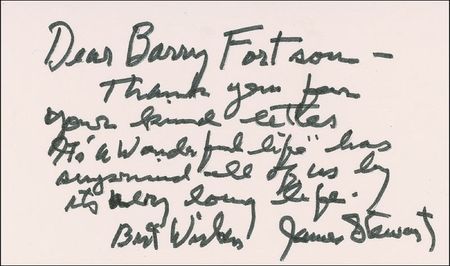 Dear Barry Fortson —
Thank you for
your kind letter
It's a Wonderful life" has
surprised all of us by
its very long life.
Best Wishes James Stewart